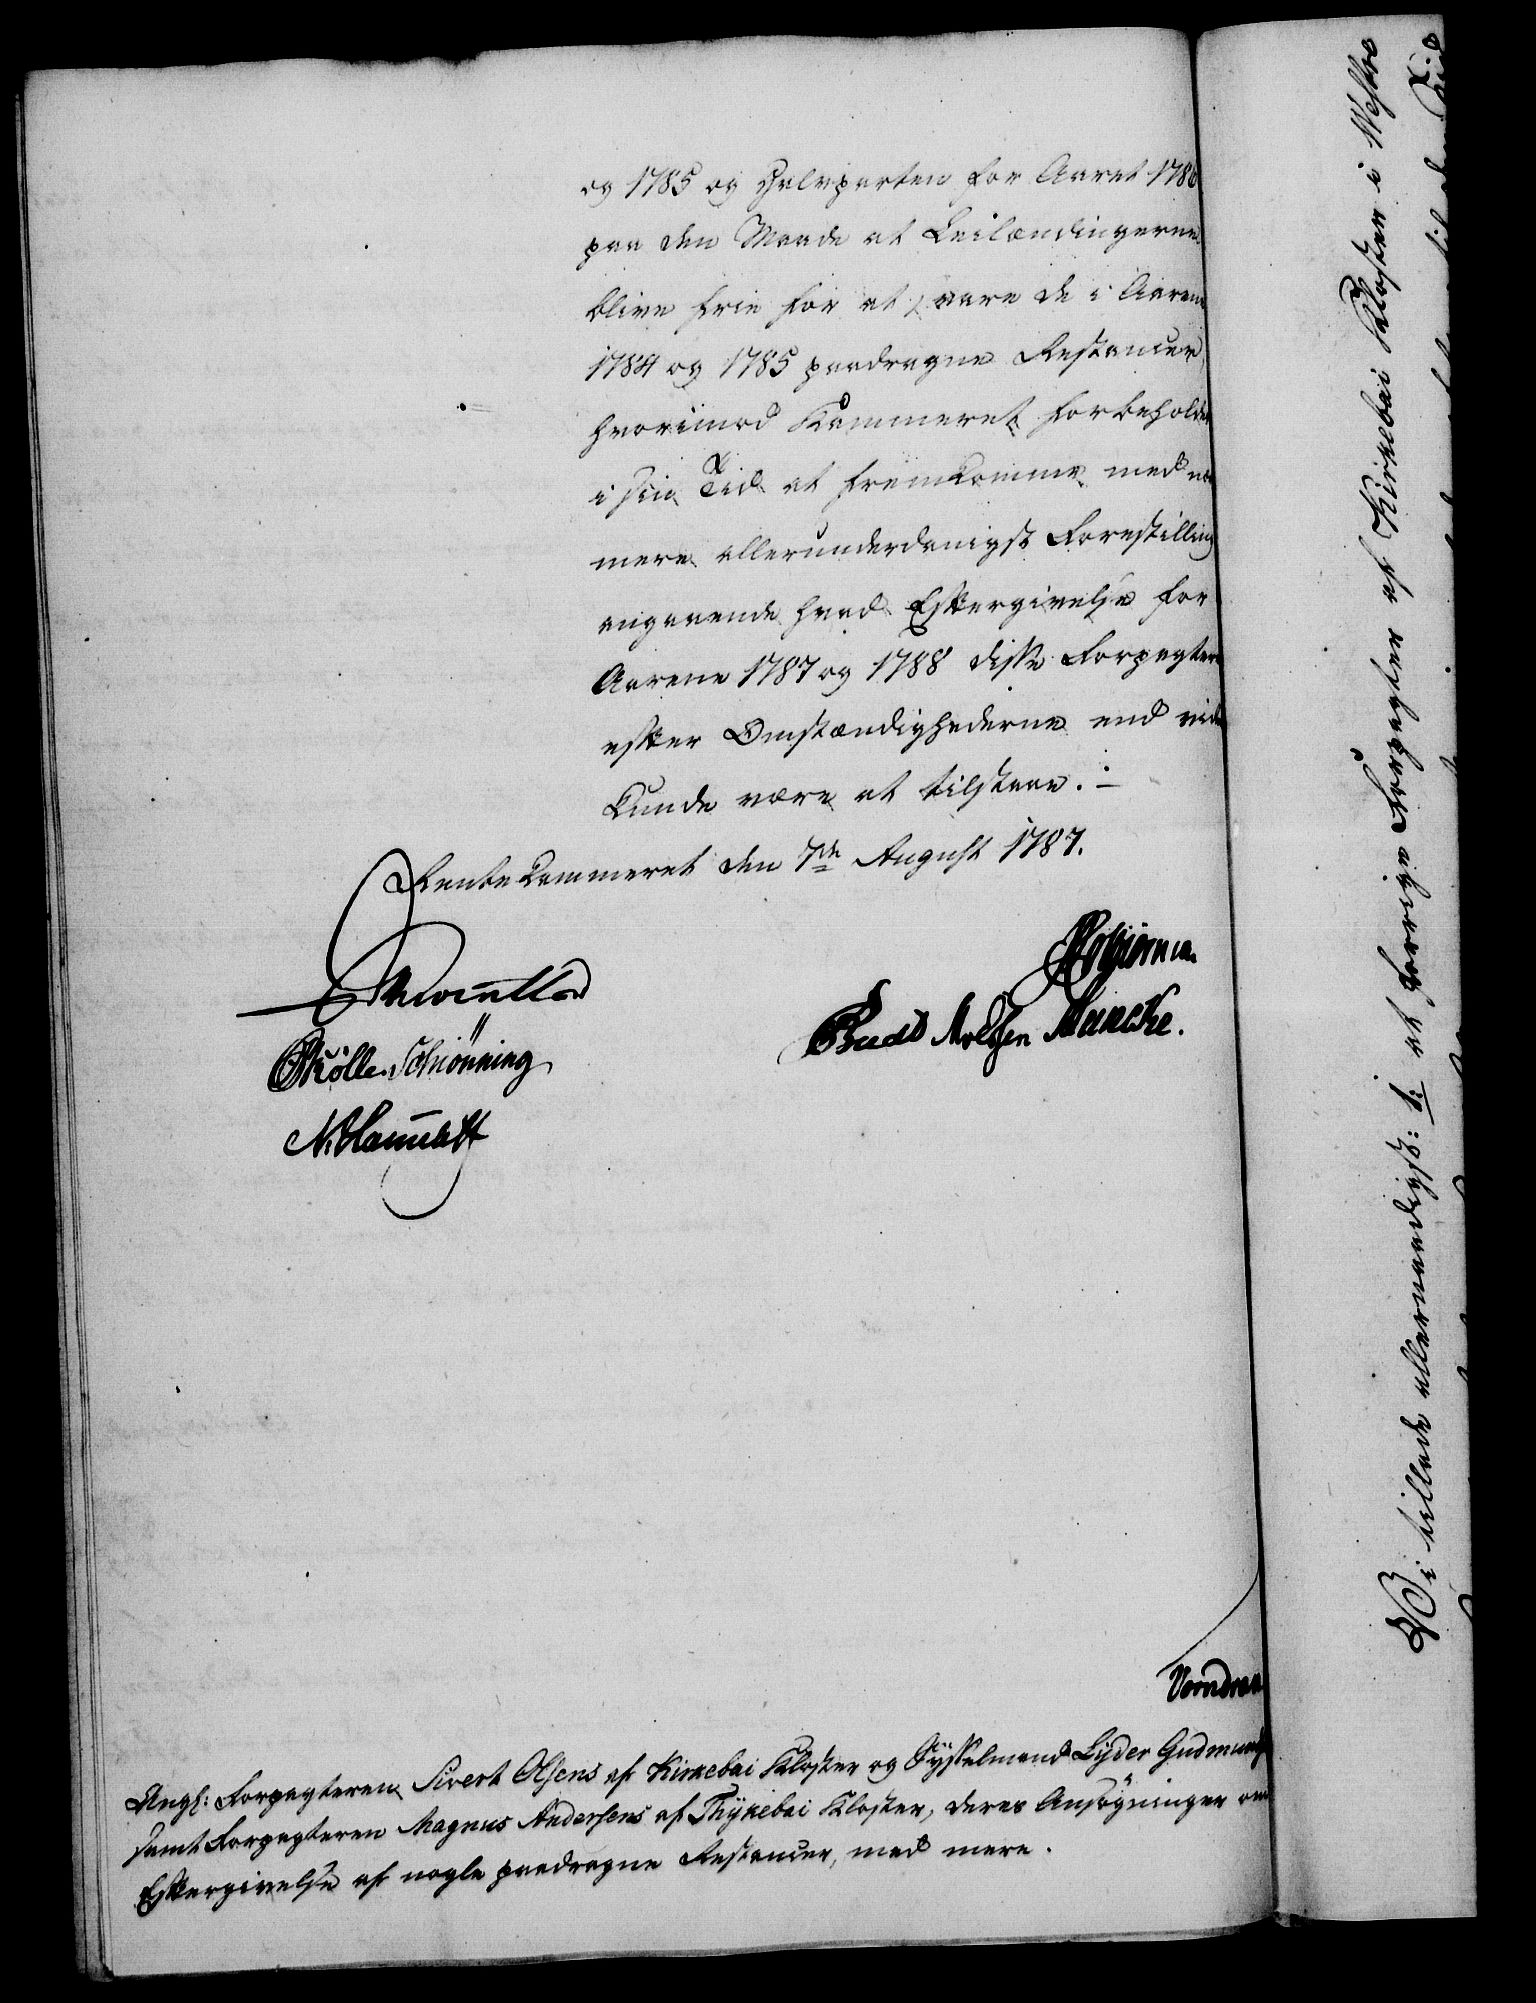 og 1785 og Halvparten for Aaret 1786
paa den Maade at Leilændingerne
blive frie for at svare de i Aarene
1784 og 1785 paadragne Restancer,
hvorimod Kammeret forbeholder
i sin Tid at fremkomme med nær
mere allerunderdanigst Forestilling
angaaende hvad Eftergivelse for
Aarene 1787 og 1788 disse Forpagtere
efter Omstændighederne end videre
kunde være at tilstaae.
Rentekammeret den 7de August 1787.
Schiønning
Vorndran
Angl: Forpagteren Sivert Olsens af Kirkebai Kloster og Sysselmand Lyder Gudmunds
samt Forpagteren Magnus Andersens af Thykkebai Kloster, deres Ansøgninger om
Eftergivelse af nogle paadragne Restancer, med mere.
Vi tillade allernaadigst: 1: at forrige Forpagter af Kirkebai Kloster i Vester